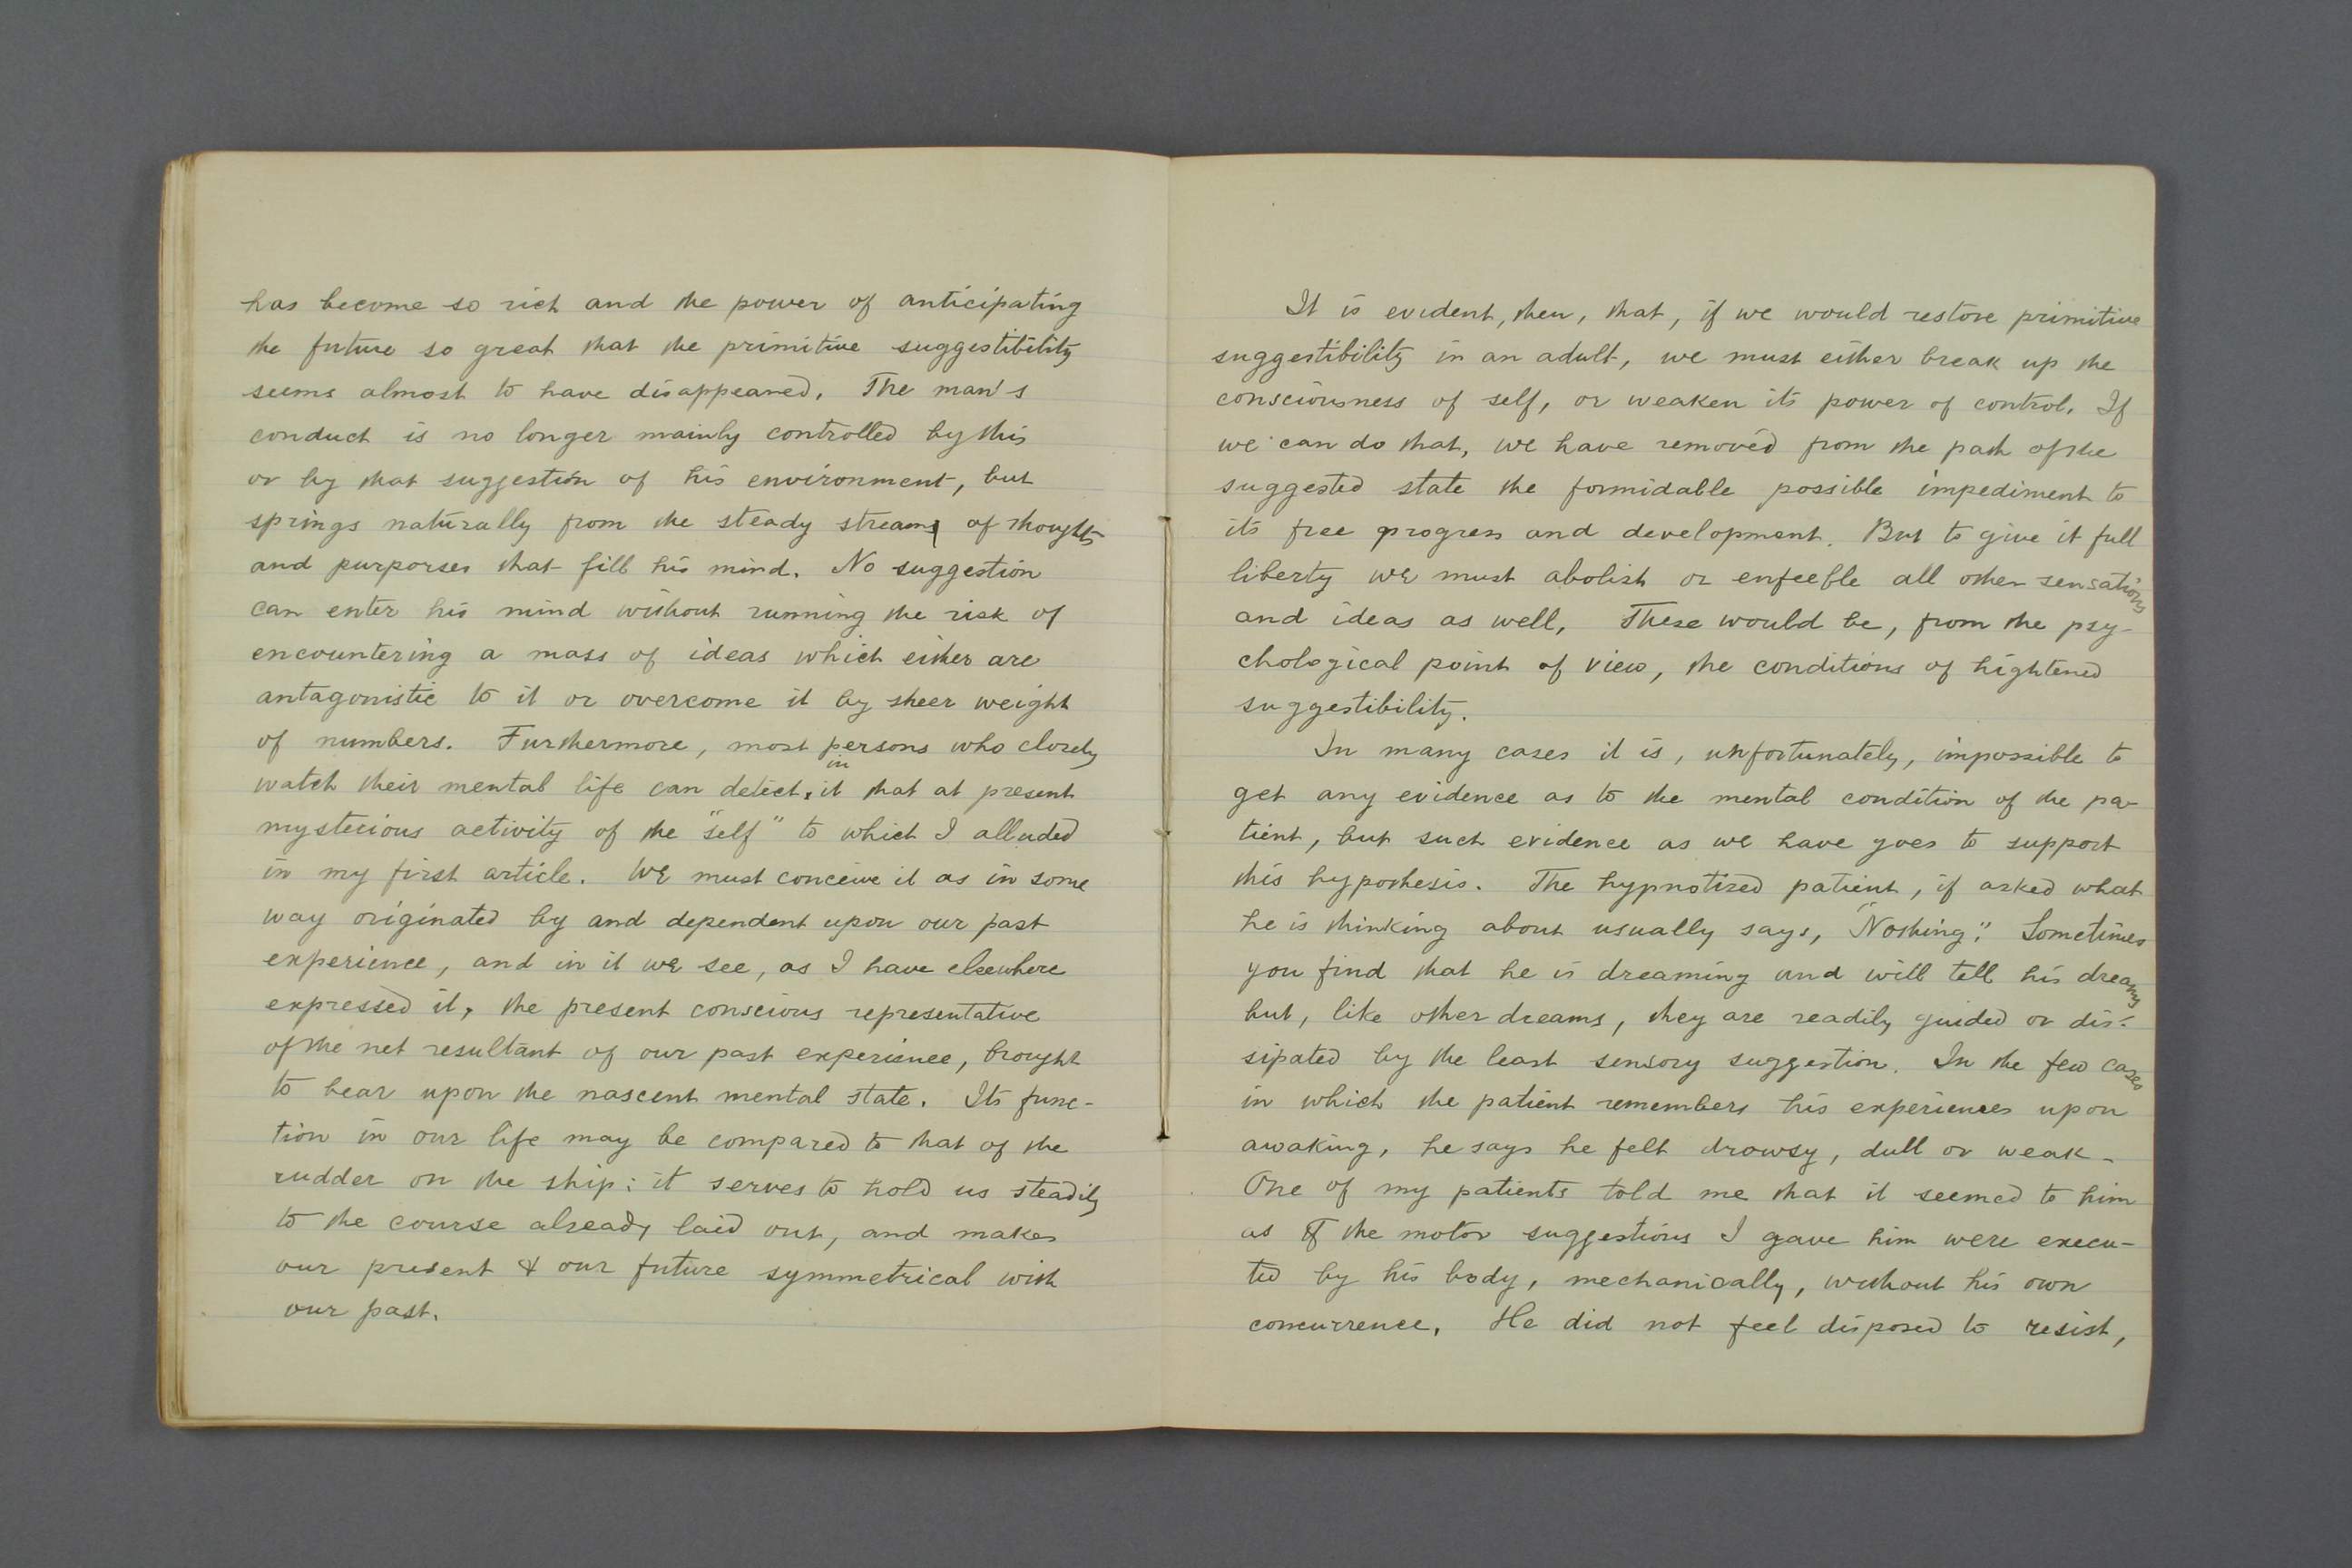 has become so rich and the power of anticipating
the future so great that the primitive suggestibility
seems almost to have disappeared. The man's
conduct is no longer mainly controlled by this
or by that suggestion of his environment, but
springs naturally from the steady stream of thoughts
and purporses that fill his mind. No suggestion
can enter his mind without running the risk of
encountering a mass of ideas which either are
antagonistic to it or overcome it by sheer weight
of numbers. Furthermore, most persons who closely
watch their mental life can detect in it that at present
mysterious activity of the "self" to which I alluded
in my first article. We must conceive it as in some
way originated by and dependent upon our past
experience, and in it we see, as I have elsewhere
expressed it, the present conscious representative
of the net resultant of our past experience, brought
to bear upon the nascent mental state. Its func-
tion in our life may be compared to that of the
rudder on the ship: it serves to hold us steadily
to the course already laid out, and makes
our present & our future symmetrical with
our past.
It is evident, then, that, if we would restore primitive
suggestibility in an adult, we must either break up the
consciousness of self, or weaken its power of control. If
we can do that, we have removed from the path of the
suggested state the formidable possible impediment to
its free progress and development. But to give it full
liberty we must abolish or enfeeble all other sensations
and ideas as well. These would be, from the psy-
chological point of view, the conditions of hightened
suggestibility.
In many cases it is, unfortunately, impossible to
get any evidence as to the mental condition of the pa-
tient, but such evidence as we have goes to support
this hypothesis. The hypnotized patient, if asked what
he is thinking about usually says, "Nothing". Sometimes
you find that he is dreaming and will tell his dreams
but, like other dreams, they are readily guided or dis-
sipated by the least sensory suggestion. In the few cases
in which the patient remembers his experiences upon
awaking, he says he felt drowsy, dull or weak.
One of my patients told me that it seemed to him
as if the motor suggestions I gave him were execu-
ted by his body, mechanically, without his own
concurrence. He did not feel disposed to resist,